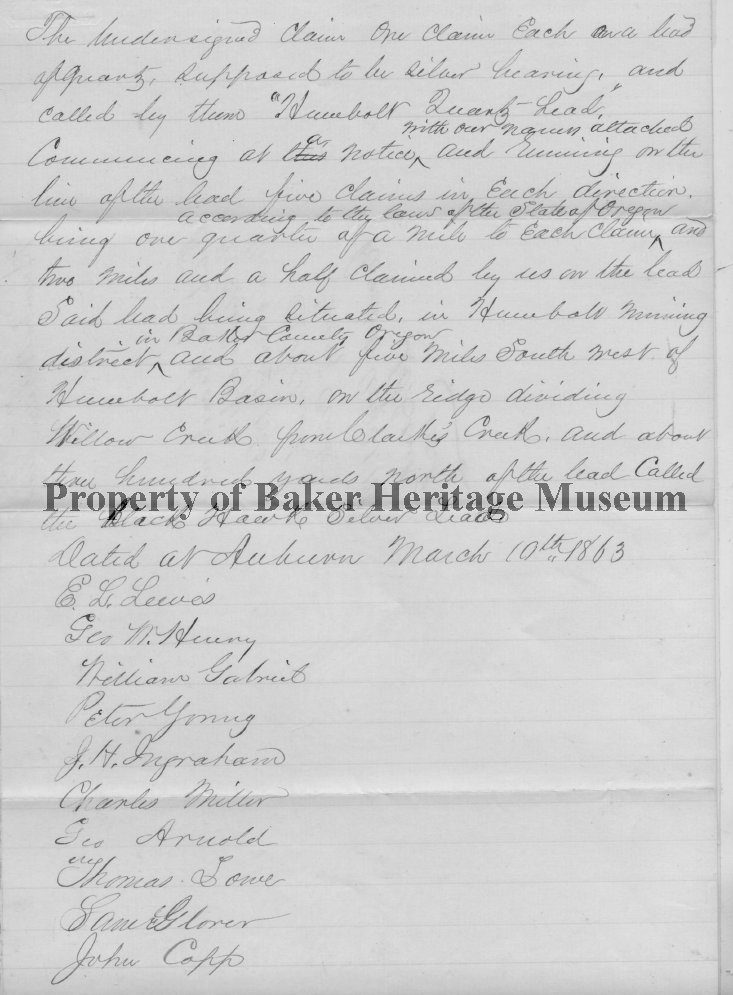 The Undersigned Claim One Claim Each on a lead
of Quartz, supposed to be silver bearing, and
called by them "Humbolt Quartz Lead,"
with our names attached
Commencing at this a notice, and running on the
line of the lead five claims in Each direction.
according to the laws of the State of Oregon
being one quarter of a mile to Each Claim, and
two miles and a half claimed by us on the lead
Said lead being situated, in Humbolt Mining
in Baker County Oregon
district, and about five miles South west of
Humbolt Basin, on the ridge dividing
Willow Creek from Clark's Creek. and about
three hundred yards north of the lead Called
Property of Baker Heritage Museum
the Black Hawk Silver Lead
Dated at Auburn March 10th 1863
E. L. Lewis
Geo W. Henry
William Gabriel
Peter Young
J. H. Ingraham
Charles Miller
Geo Arnold
Thomas Lowe
Sam Glover
John Copp